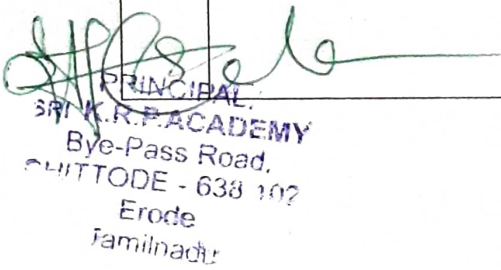 PRINCIPAL.
SRI K.R.P. ACADEMY
Bye-Pass Road,
CHITTODE - 638 102
Erode
Tamilnadu